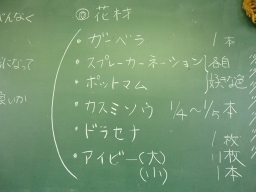 ◎花材
・ガーベラ 1本
・スプレーカーネーション 各自
・ポットマム 好きな色
・カスミソウ 1/4〜1/5本
・ドラセナ 1枚
・アイビー(大) 1枚
(小) 1本
んなく
になって
良いか